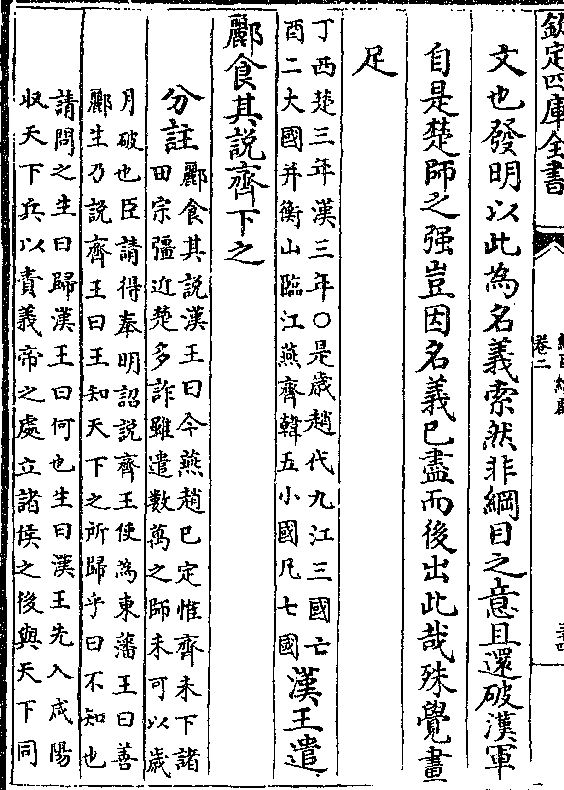 欽定四庫全書
卷二
文也發明以此為名義索然非綱目之意且還破漢軍
自是楚師之强豈因名義已盡而後出此哉殊覺畫
足
丁酉楚三年漢三年○是歲趙代九江三國亡
酉二大國并衡山臨江燕齊韓五小國凡七國
漢王遣
酈食其說齊下之
分註
酈食其說漢王曰今燕趙已定惟齊未下諸
田宗彊近楚多詐雖遣數萬之師未可以歲
月破也臣請得奉明詔說齊王使為東藩王曰善
酈生乃說齊王曰王知天下之所歸乎曰不知也
請問之生曰歸漢王曰何也生曰漢王先入咸陽
収天下兵以責義帝之處立諸侯之後與天下同